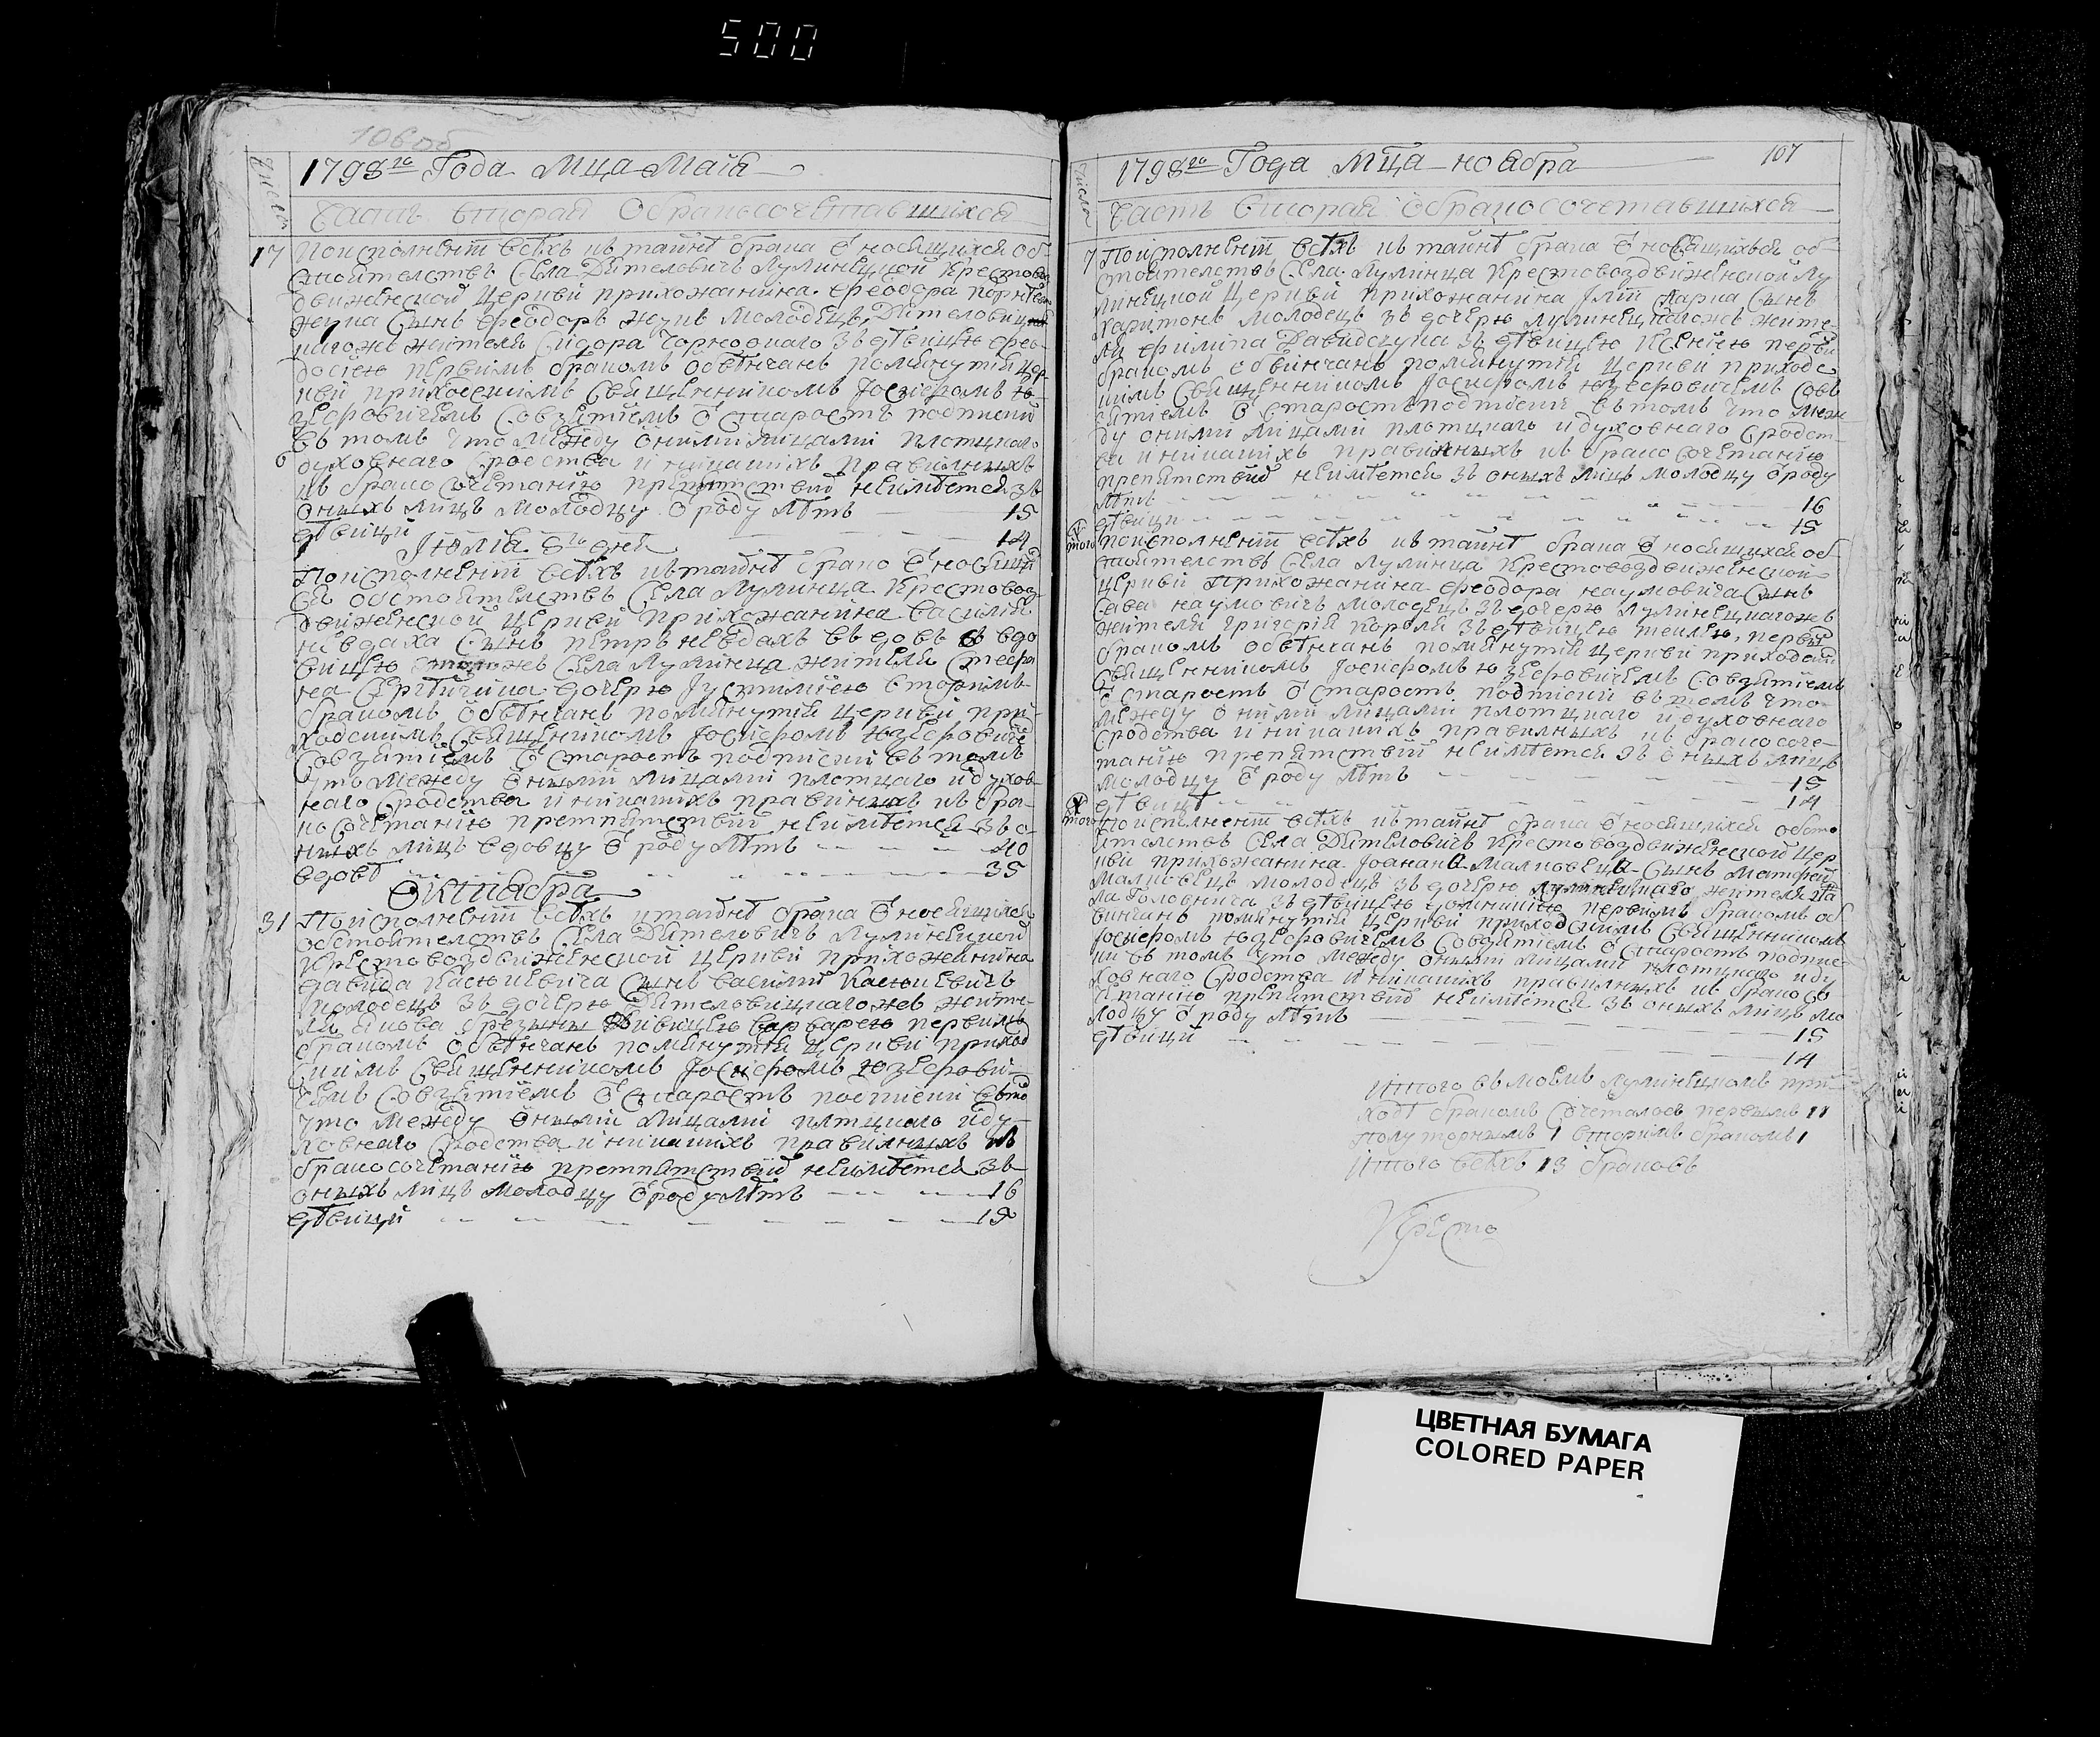 500
106 об
1798го Года Мца Маія
Число
Часть вторая Обракосочетавшихся
17 Поисполненіи всѣхъ къ тайнѣ брака Относящихся об-
стоителствъ Села Дятеловичъ Лулинецкой Крестовоз
движенской Церкви прихожанина Феодора
Сынъ Феодоръ Молодецъ, Дятеловиц
кагожъ жителя Сидора Чорноокаго зъ дѣвицею Фео-
досіею первимъ бракомъ Обвѣнчанъ помянутія Цер-
кви приходскимъ Священникомъ Іосифомъ Ю-
зефовичемъ Совзятіемъ О старостъ подписки
въ томъ что Между Оними Лицами плотцкаго
духовнаго Сродства и никакихъ правилныхъ
къ бракосочетанію препятствий неимѣется зъ
Оныхъ лицъ Молодцу О роду Лѣтъ 15
дѣвици 14
Іюлія 6го дня
6 Поисполненіи всѣхъ къ тайнѣ брака Относящих
ся обстоителствъ Села Лулинца Крестовоз-
движенской Церкви Прихожанина Василія
невдаха Сынъ петръ невдахъ вдовъ зъ вдо
вицею тогожъ Села Лулинца жителя Стефа
на дочерю Іустиміею вторимъ
бракомъ Обвѣнчанъ помянутія Церкви при-
ходскимъ Священникомъ Іосифомъ Юзефовиче
Совзятіемъ О старостъ подписки въ томъ
что Между Оными лицами плотцкаго и духов-
наго Сродства и никакихъ правилныхъ къ бра-
косочетанію препятствий неимѣется зъ о-
ныхъ лицъ вдовцу О роду Лѣтъ 40
вдовѣ 35
Октиабра
31 Поисполненіи всѣхъ к тайнѣ брака Относящихся
обстоителствъ Села Дятеловичъ Лулинецкой
Крестовоздвиженской церкви прихожанина
давида Касюкевича Сынъ василий Касюкевичъ
молодецъ зъ дочерю Дятеловицкагожъ жите-
ля дівицею варварею первимъ
бракомъ Обвѣнчанъ помянутія Церкви приход
скимъ Священникомъ Іосифомъ Юзефови-
чемъ Совзятіемъ О старостъ подписки вътом
что Между Оными Лицами плтцкаго иду-
ховнаго Сродства и никакихъ правилныхъ къ
бракосочетанію препятствий неимѣется зъ
оныхъ лицъ Молодцу О роду Лѣтъ 16
дѣвици 15
1798го Года Мца ноабра 107
Число
Часть вторая Обракосочетавшихся
7 Поисполненіи всѣхъ къ тайнѣ брака Относящихъся об
стоителствъ Села Лулинца Крестовоздвиженской Лу
линецкой Церкви прихожанина Карпа Сынъ
харитонъ молодецъ зъ дочерю лулинецкагожъ жите-
ля филипа Давидчука зъ дѣвицею Ксеніею перви
бракомъ обвінчанъ помянутія Церкви приходс
кимъ Священникомъ Іосифомъ Юзефовичемъ Совз
ятіемъ О старостъ подписки въ томъ что меж
ду оними лицами плотцкаго и духовнаго Сродст-
ва и никакихъ правилныхъ къ бракосочетанію
препятствий неимѣется зъ оныхъ лицъ молодцу О роду
Лѣтъ 16
дѣвици 15
того поисполненіи всѣхъ къ тайнѣ брака Относящихся об
стоителствъ Села Лулинца Крестовоздвиженской
церкви Прихожанина феодора наумовича Сынъ
Сава наумовичъ молодецъ зъ дочерю Лулинецкагожъ
жителя григорія Короля зъ дѣвицею теклею, первим
бракомъ обвѣнчанъ помянутія церкви приходски
Священникомъ Іосифомъ Юзефовичемъ Совзятіемъ
О старостъ О старостъ подписки въ томъ что-
между Оними лицами плотцкаго и духовнаго
Сродства и никакихъ правилныхъ къ бракосоче-
танію препятствий неимѣется зъ оныхъ лицъ
Молодцу О роду Лѣтъ 15
дѣвицѣ 14
того поисполненіи всѣхъ къ тайнѣ брака Относящихся обсто
ителствъ Села Дятеловичъ Крестовоздвиженской Цер
кви прихожанина Іоанана Малковеца Сынъ Матфей
Малковецъ молодецъ зъ дочерю лулинецкаго жителя
Головнича зъ дѣвицею первимъ бракомъ об
винчанъ помянутія Церкви приходскимъ Священникомъ
Іосифомъ Юзефовичемъ Совзятіемъ О Старостъ подпис-
ки въ томъ что Между Оними лицами плотцкаго иду
ховнаго Сродства и никакихъ правилныхъ къ бракосо
четанію препятствий неимѣется зъ оныхъ лицъ мо
лодцу О роду Лѣтъ 15
дѣвици 14
Итого въ моемъ Лулинецкомъ при-
ходѣ бракомъ Сочеталось первымъ 11
полуторнымъ 1 вторимъ бракомъ 1
Итого всѣхъ 13 браковъ
Кресто
ЦВЕТНАЯ БУМАГА
COLORED PAPER